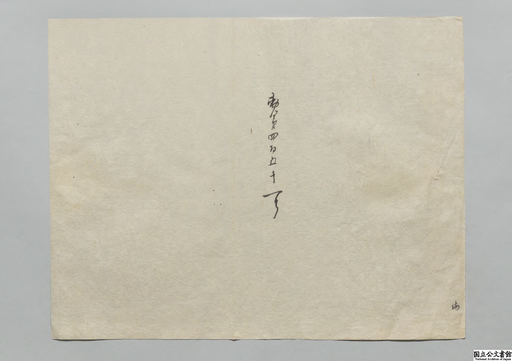 勅令第四百五十号
国立公文書館
National Archives of Japan